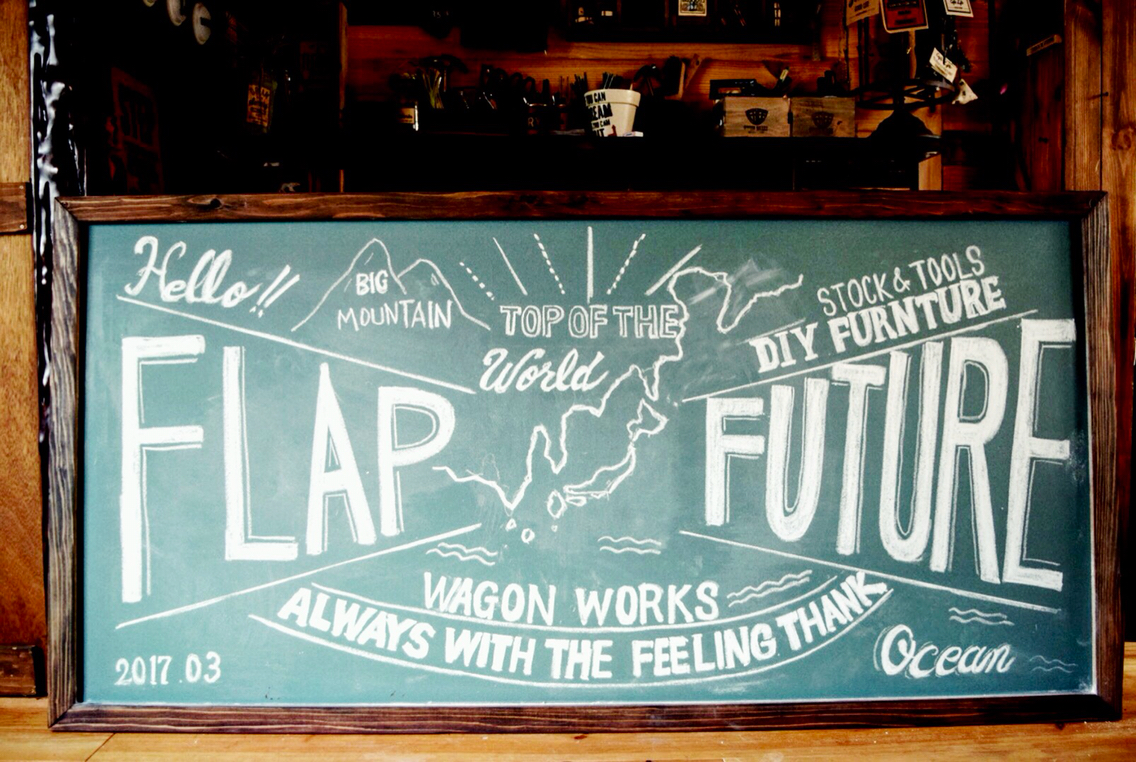 YOU CAN
Hello!!
BIG
MOUNTAIN
TOP OF THE
World
STOCK & TOOLS
DIY FURNTURE
FLAP
FUTURE
WAGON WORKS
ALWAYS WITH THE FEELING THANK
2017.03
Ocean